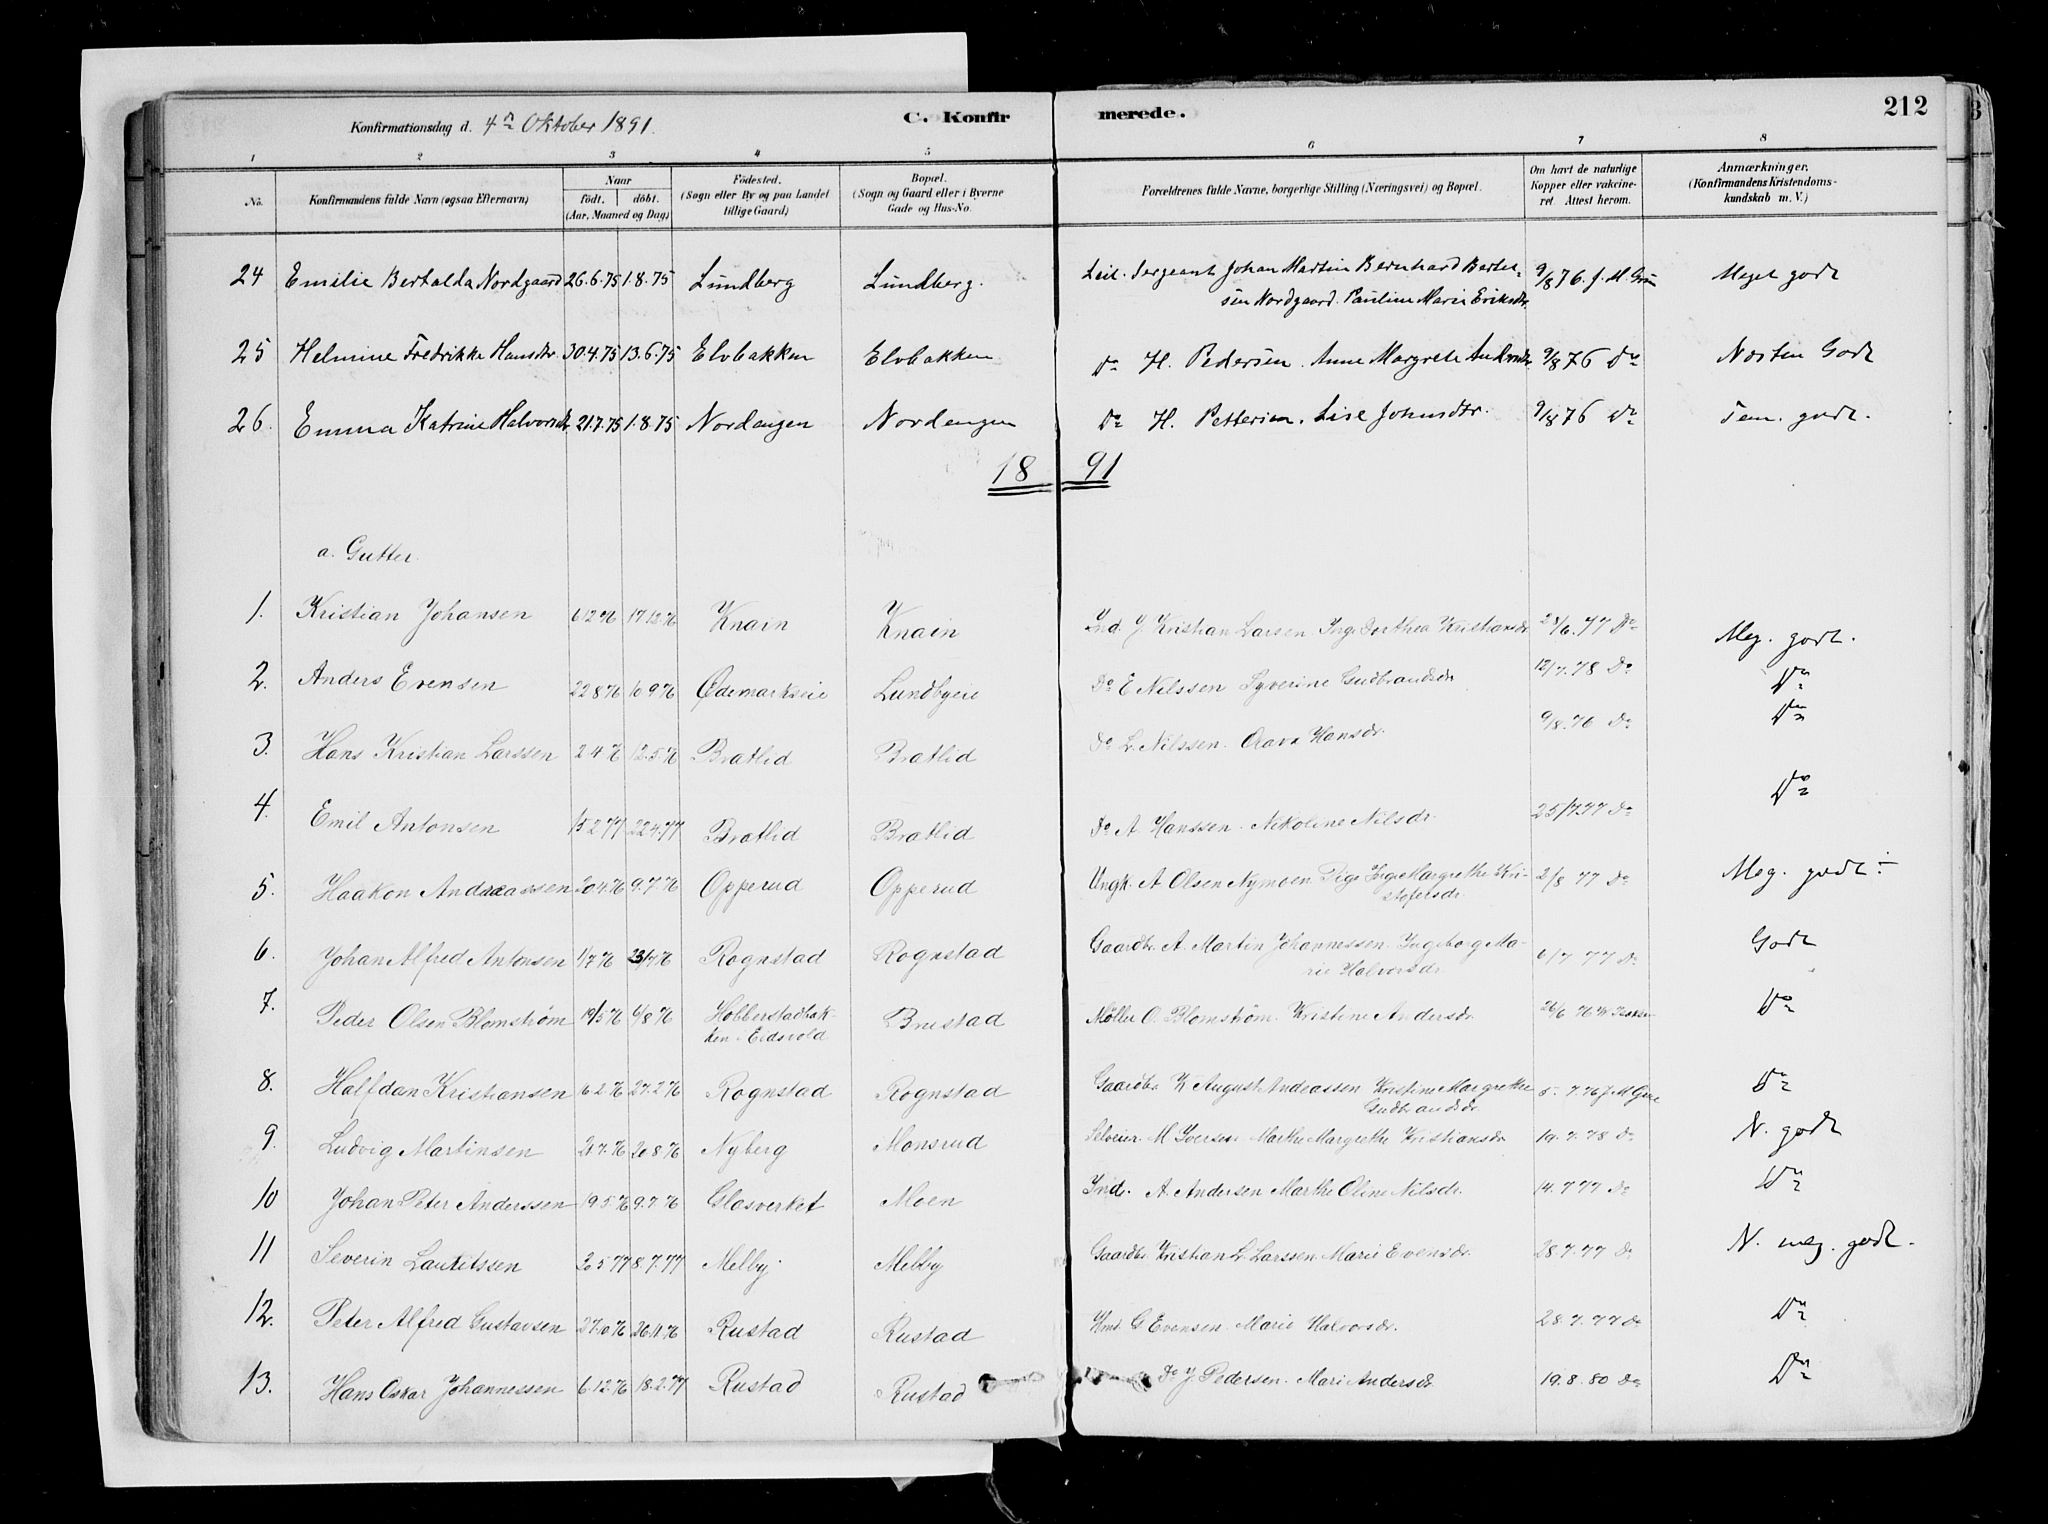 Konfirmationsdag d. 4de Oktober 1891.
C. Konfirmerede.
212
1 2 3 4 5 6 7 8
No. Konfirmandens fulde Navn (ogsaa Efternavn) Naar født. døbt. (Aar, Maaned og Dag) Fødested. (Sogn eller By og paa Landet tillige Gaard) Bopæl. (Sogn og Gaard eller i Byerne Gade og Hus-No. Forældrenes fulde Navne, borgerlige Stilling (Næringsvei) og Bopæl. Om havt de naturlige Kopper eller vakcineret. Attest herom. Anmærkninger. (Konfirmandens Kristendomskundskab m. V.)
24 Emilie Bertalda Nordgaard 26.6.75 1.8.75 Lundberg Lundberg. Sergeant Johan Martin Bernhard Bertel-
sen Nordgaard. Pauline Marie Eriksdtr. 9/8 76. J. M. Meget godt
25 Helmine Fredrikke Hansdtr. 30.4.75 13.6.75 Elvbakken Elvbakken Do H. Pedersen. Anne Margrete Andersdtr 9/8 76 Do Næsten Godt
26. Emma Katrine Halvorsdtr. 21.7.75 1.8.75 Nordengen Nordengen Do H. Pettersen. Lise Johnsdtr. 9/8 76 Do Tem. godt.
1891
a. Gutter.
1. Kristian Johansen 6 12 76 17 12.76 Knain Knain Ind. J. Kristian Larsen Inge Dorthea Kristiansdr 28/6.77 Do Meg. godt.
2. Anders Evensen 22 8 76 10 9 76 Ødemarkseie Lundbyeie Do E Nilssen Syverine Gudbrandsdr 12/7.78 Do Do
3. Hans Kristian Larssen 2 4 76 12.5.76 Bratlid Bratlid Do L. Nilssen. Hansdr. 9/8.76 Do Do
4. Emil Antonsen 15 2 77 22 4.77 Bratlid Bratlid Do A Hanssen. Nikoline Nilsdr. 25/7.77 Do Do
5. Haakon Andreassen 20 4.76 9.7.76 Opperud Opperud Ungk. A Olsen Nymoen Pige Inge Margrethe Kri-
stofersdr. 2/8 77 Do Meg. godt ÷
6. Johan Alfred Antonsen 1/7 76 23/7 76 Rognstad Rognstad Gaardbr. A. Martin Johannessen. Ingeborg Ma-
rie Halvorsdr. 6/7 77 Do Godt
7. Peder Olsen Blomstrøm 19/5 76 6/8 76 Hobberstadbak-
ken Eidsvold Brustad Møller O. Blomstrøm. Kristine Andersdr. 26/6 76 Do
8. Halfdan Kristiansen 6 2.76 27.2 76 Rognstad Rognstad Gaardbr K August Andeassen Kristine Margrethe
Gudbrandsdr 5. 7.76 J M Do
9. Ludvig Martinsen 21 7.76 20 8.76 Nyberg Monsrud Selveier. M Iversen Marthe Margrethe Kristiansdr 19.7.78 Do N. godt
10 Johan Peter Anderssen 19 5.76 9.7.76 Glasverket Moen Ind. A. Andersen Marthe Oline Nilsdr. 14.7 77 Do Do
11 Severin Lauritssen 20 5 77 8.7.77 Melby Melby Gaardbr Kristian L. Larssen Marie Evensdr 28.7.77 Do N. meg. godt.
12. Peter Alfred Gustavsen 27.10 76 26.11.76 Rustad Rustad Hmd. G Evensen. Marie Halvorsdr. 28.7.77 Do Do
13. Hans Oskar Johannessen 6.12.76 18.2.77 Rustad Rustad Do J. Pedersen. Mari Andersdr. 19.8.80 Do Do